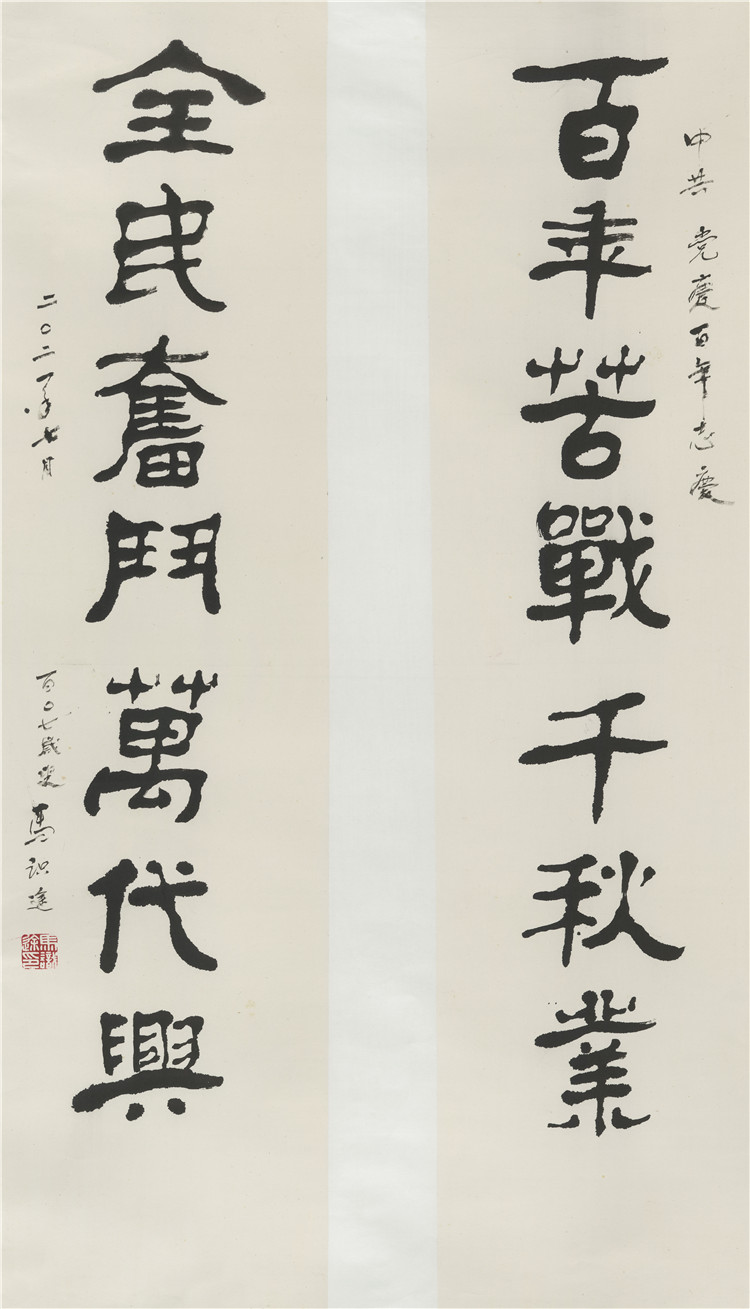 中共党庆百年志庆
百年苦戰千秋業
全民奮鬥萬代興
二〇二一年七月
百〇七歲叟馬识途
馬識途印